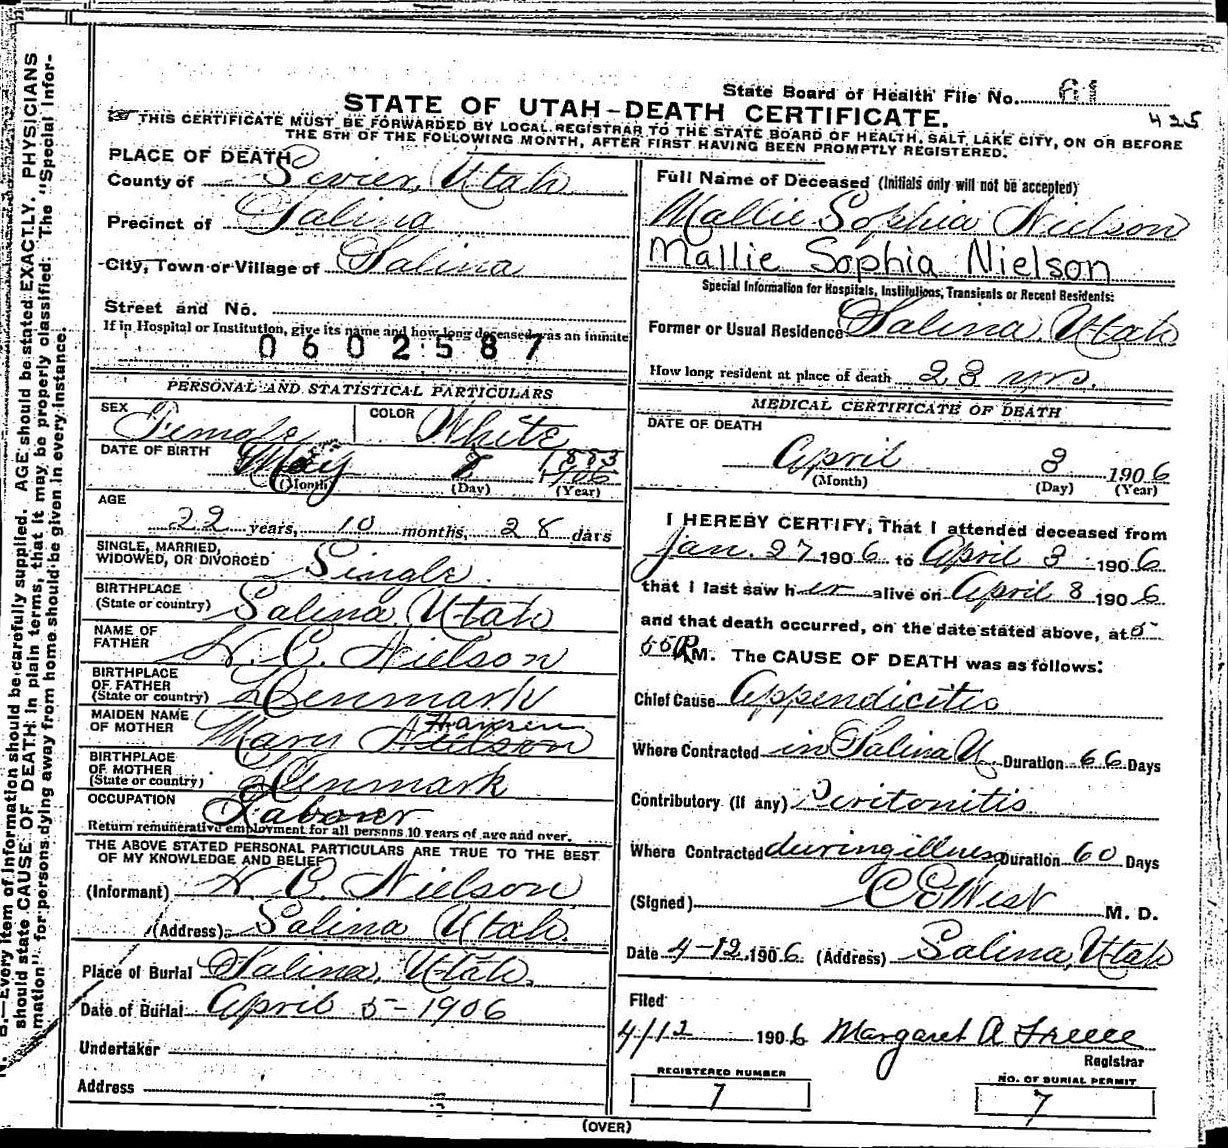 State Board of Health File No. 61
STATE OF UTAH-DEATH CERTIFICATE.
425
THIS CERTIFICATE MUST BE FORWARDED BY LOCAL REGISTRAR TO THE STATE BOARD OF HEALTH, SALT LAKE CITY, ON OR BEFORE
THE 5TH OF THE FOLLOWING MONTH, AFTER FIRST HAVING BEEN PROMPTLY REGISTERED.
PLACE OF DEATH
County of Sevier, Utah
Precinct of Salina
City, Town or Village of Salina
Street and No.
If in Hospital or Institution, give its name and how long deceased was an inmate
0602587
PERSONAL AND STATISTICAL PARTICULARS
SEX Female COLOR White
DATE OF BIRTH May 1883
(Month) (Day) (Year)
AGE
22 years, 10 months, 28 days
SINGLE, MARRIED,
WIDOWED, OR DIVORCED Single
BIRTHPLACE
(State or country) Salina, Utah
NAME OF
FATHER N. C. Nielson
BIRTHPLACE
OF FATHER
(State or country) Denmark
MAIDEN NAME
OF MOTHER Mary
BIRTHPLACE
OF MOTHER
(State or country) Denmark
OCCUPATION Laborer
Return remunerative employment for all persons 10 years of age and over.
THE ABOVE STATED PERSONAL PARTICULARS ARE TRUE TO THE BEST
OF MY KNOWLEDGE AND BELIEF
(Informant) N. C. Nielson
(Address) Salina Utah.
Place of Burial Salina, Utah.
Date of Burial April 5-1906
Undertaker
Address
Full Name of Deceased (Initials only will not be accepted)
Mallie Sophia Nielson
Mallie Sophia Nielson
Special Information for Hospitals, Institutions, Transients or Recent Residents:
Former or Usual Residence Salina, Utah
How long resident at place of death 23 yrs.
MEDICAL CERTIFICATE OF DEATH
DATE OF DEATH
April 3 1906
(Month) (Day) (Year)
I HEREBY CERTIFY, That I attended deceased from
Jan. 27 1906 to April 3 1906
that I last saw her alive on April 8 1906
and that death occurred, on the date stated above, at 5
55 P M. The CAUSE OF DEATH was as follows:
Chief Cause Appendicitis
Where Contracted in Salina U. Duration 66 Days
Contributory (if any) Peritonitis
Where Contracted during illness Duration 60 Days
(Signed) C E West M. D.
Date 4-12, 1906 (Address) Salina, Utah
Filed
4/12 1906 Margaret A
Registrar
REGISTERED NUMBER
7
NO. OF BURIAL PERMIT
7
(OVER)
N. B.—Every item of information should be carefully supplied. AGE should be stated EXACTLY. PHYSICIANS
should state CAUSE OF DEATH in plain terms, that it may be properly classified. The "Special Infor-
mation" for persons dying away from home should be given in every instance.